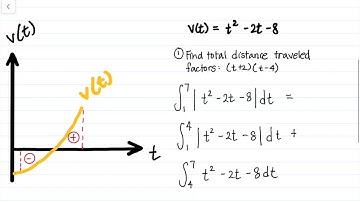 v(t)
v(t)
⊖
⊕
t
v(t) = t² - 2t - 8
① Find total distance traveled
factors: (t+2)(t-4)
∫₁⁷ | t² - 2t - 8 | dt =
∫₁⁴ | t² - 2t - 8 | dt +
∫₄⁷ t² - 2t - 8 dt